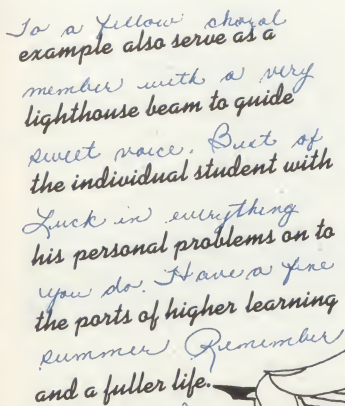 To a fellow choral
example also serve as a
member with a very
lighthouse beam to guide
sweet voice. Best of
the individual student with
Luck in everything
his personal problems on to
you do. Have a fine
the ports of higher learning
summer Remember
and a fuller life.